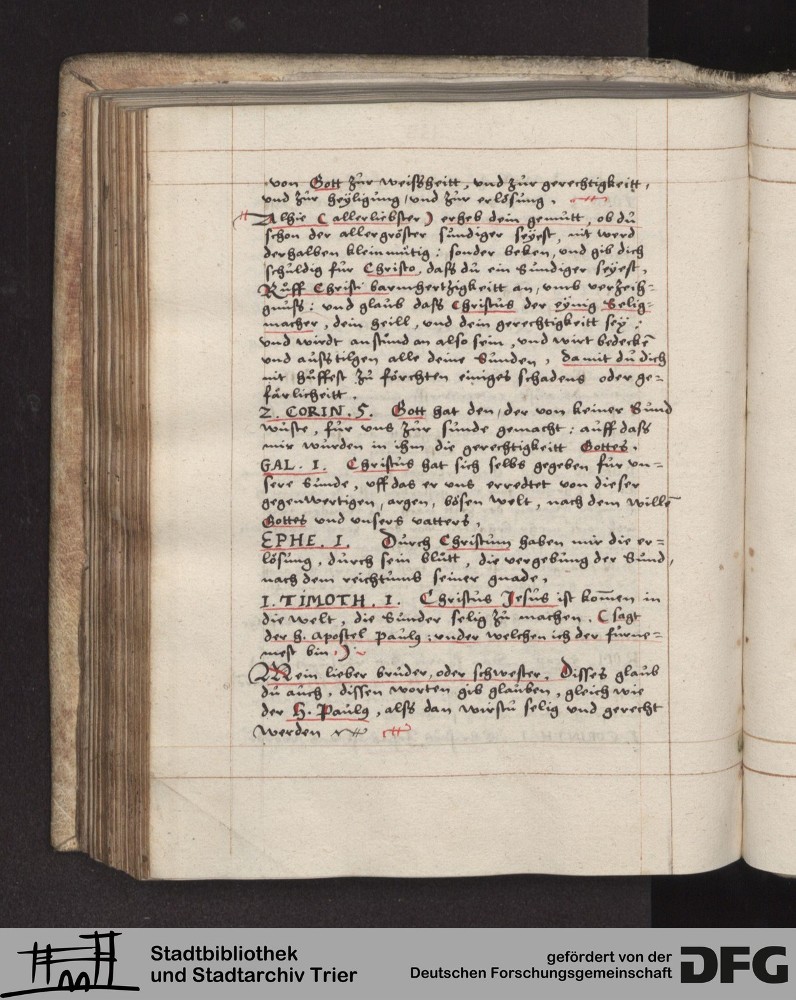 von Gott zur weißheitt, vnd zur gerechtigkeitt,
vnd zur heyligung / vnd zur erlösung.
Alhie ( allerliebster ) erheb dein gemütt, ob du
schon der allergröster sundiger seyest, nit werd
derhalben kleinmütig: sonder beken, vnd gib dich
schuldig für Christo, dass du ein Sundiger seyest,
Ruff Christi barmhertzigkeitt an, vmb verzeih=
gnuss: vnd glaub dass Christus der eynig Selig=
macher, dein heill, vnd dein gerechtigkeitt sey:
vnd wirdt anstund an also sein, vnd wirt bedeckē
vnd ausstilgen alle deine Sunden, damit du dich
nit huffest zu förchten einiges schadens oder ge=
färlicheitt.
2. CORIN. 5. Gott hat den, der von keiner Sund
wuste, für vns zur sunde gemacht: auff dass
mir wurden in ihm die gerechtigkeitt Gottes.
GAL. I. Christus hat sich selbs gegeben für vn=
sere Sunde, vff das er vns erredtet von dieser
gegenwertigen, argen, bösen welt, nach dem willē
Gottes vnd vnsers vatters,
EPHE. I. Durch Christum haben mir die er=
lösung, durch sein blutt, die vergebung der Sund,
nach dem reichtumb seiner gnade,
I. TIMOTH. I. Christus Jesus ist kom̄en in
die welt, die Sunder selig zu machen. ( sagt
der H. apostel Paulꝰ: vnder welchen ich der fürne=
mest bin, )
Mein lieber bruder, oder schwester, Disses glaub
du auch, dissen worten gib glauben, gleich wie
der H. Paulꝰ, alss dan wirstu selig vnd gerecht
werden
Stadtbibliothek
und Stadtarchiv Trier
gefördert von der
Deutschen Forschungsgemeinschaft
DFG